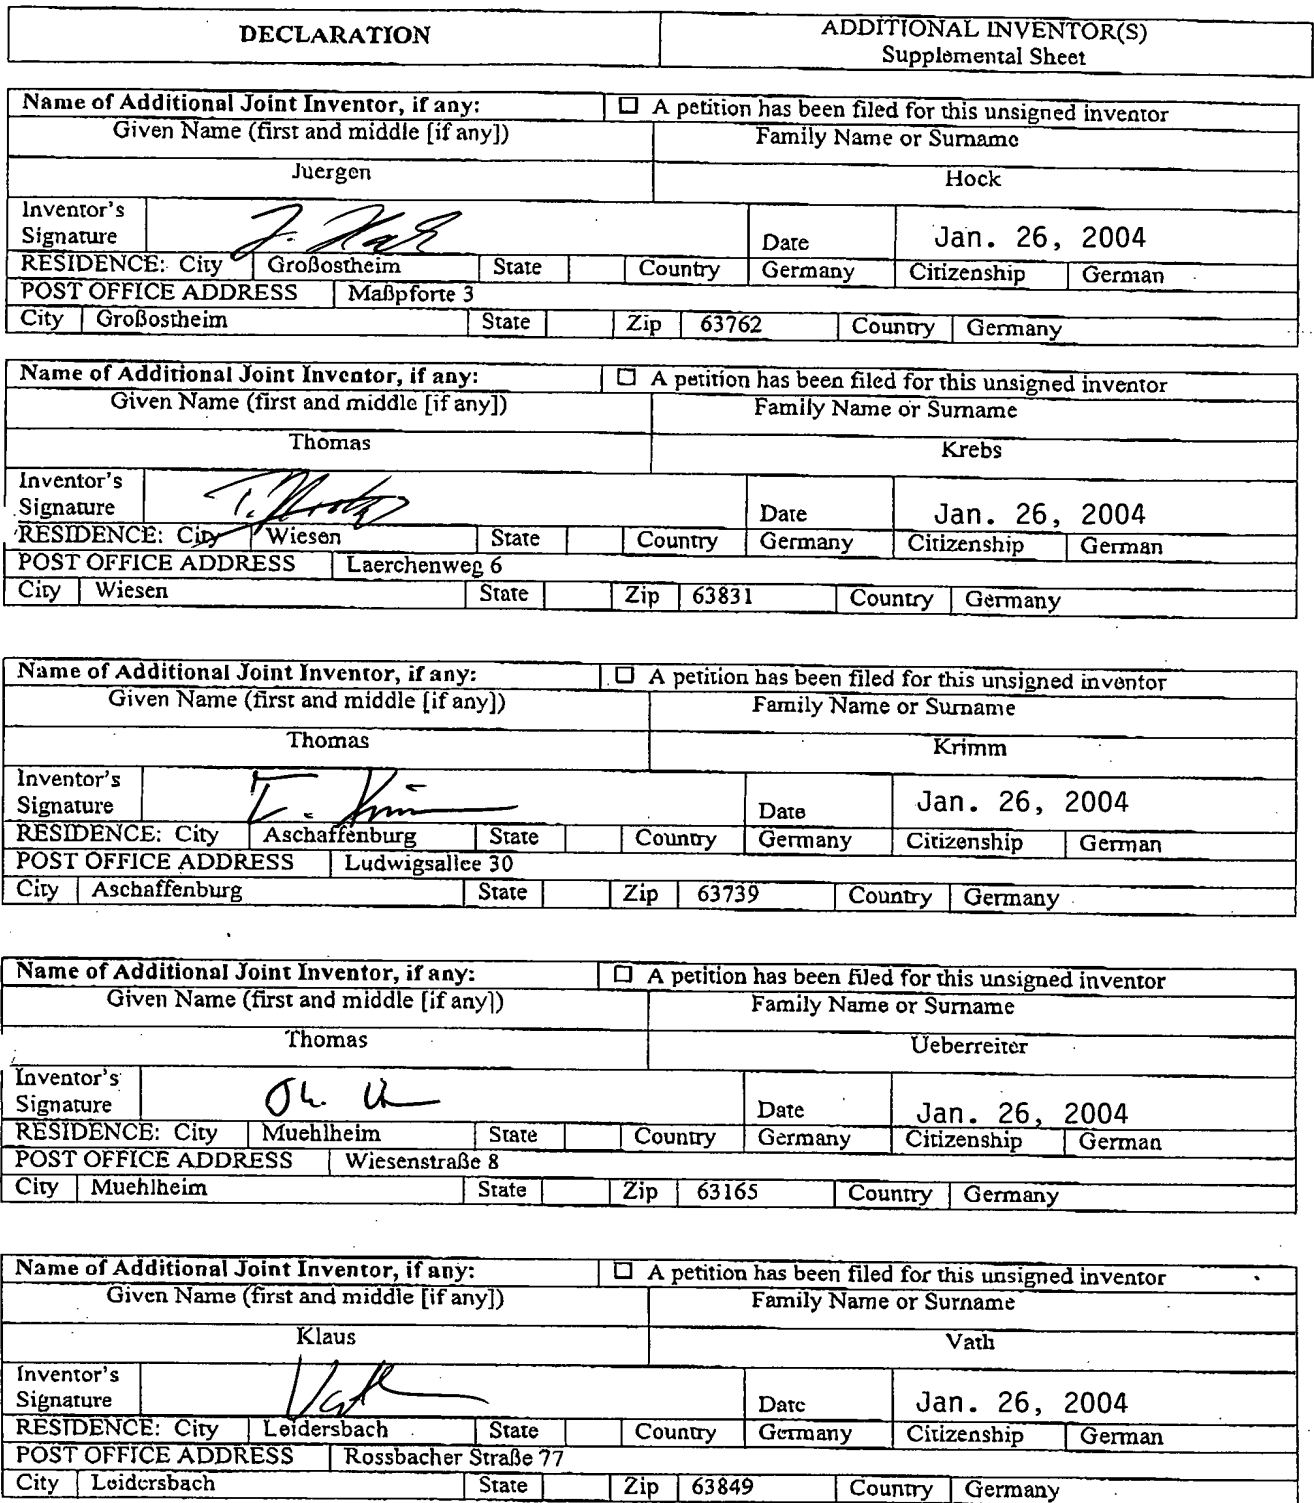 DECLARATION ADDITIONAL INVENTOR(S)
Supplemental Sheet
Name of Additional Joint Inventor, if any: ☐ A petition has been filed for this unsigned inventor
Given Name (first and middle [if any]) Family Name or Surname
Juergen Hock
Inventor's
Signature J. Hock Date Jan. 26, 2004
RESIDENCE: City Großostheim State Country Germany Citizenship German
POST OFFICE ADDRESS Maßpforte 3
City Großostheim State Zip 63762 Country Germany
Name of Additional Joint Inventor, if any: ☐ A petition has been filed for this unsigned inventor
Given Name (first and middle [if any]) Family Name or Surname
Thomas Krebs
Inventor's
Signature T. Krebs Date Jan. 26, 2004
RESIDENCE: City Wiesen State Country Germany Citizenship German
POST OFFICE ADDRESS Laerchenweg 6
City Wiesen State Zip 63831 Country Germany
Name of Additional Joint Inventor, if any: ☐ A petition has been filed for this unsigned inventor
Given Name (first and middle [if any]) Family Name or Surname
Thomas Krimm
Inventor's
Signature T. Krimm Date Jan. 26, 2004
RESIDENCE: City Aschaffenburg State Country Germany Citizenship German
POST OFFICE ADDRESS Ludwigsallee 30
City Aschaffenburg State Zip 63739 Country Germany
Name of Additional Joint Inventor, if any: ☐ A petition has been filed for this unsigned inventor
Given Name (first and middle [if any]) Family Name or Surname
Thomas Ueberreiter
Inventor's
Signature Date Jan. 26, 2004
RESIDENCE: City Muehlheim State Country Germany Citizenship German
POST OFFICE ADDRESS Wiesenstraße 8
City Muehlheim State Zip 63165 Country Germany
Name of Additional Joint Inventor, if any: ☐ A petition has been filed for this unsigned inventor
Given Name (first and middle [if any]) Family Name or Surname
Klaus Vath
Inventor's
Signature Vath Date Jan. 26, 2004
RESIDENCE: City Leidersbach State Country Germany Citizenship German
POST OFFICE ADDRESS Rossbacher Straße 77
City Leidersbach State Zip 63849 Country Germany